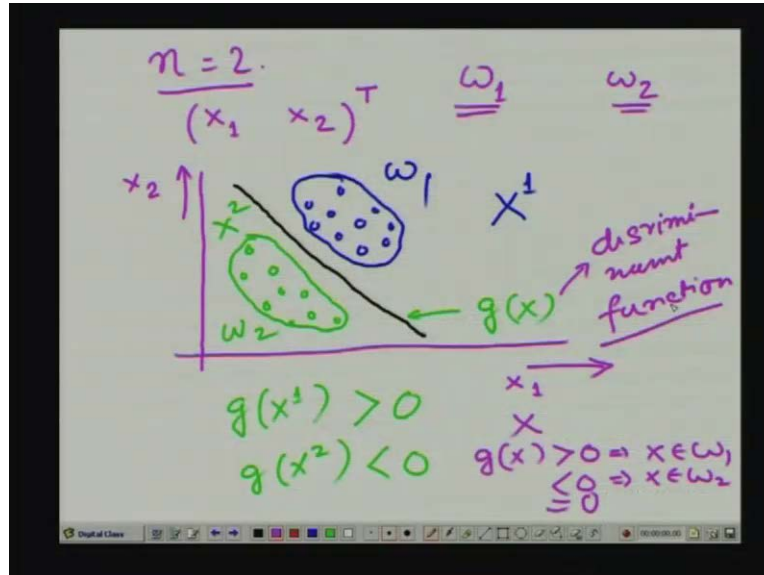 n = 2.
(x₁ x₂)ᵀ ω₁ ω₂
x₂ ↑
ω₁
X¹
X²
ω₂
← g(x)
disrimi-
nant
function
x₁ →
g(x¹) > 0
g(x²) < 0
X
g(x) > 0 ⇒ x ∈ ω₁
< 0 ⇒ x ∈ ω₂
= 0
Digital Class
00:00:00.00